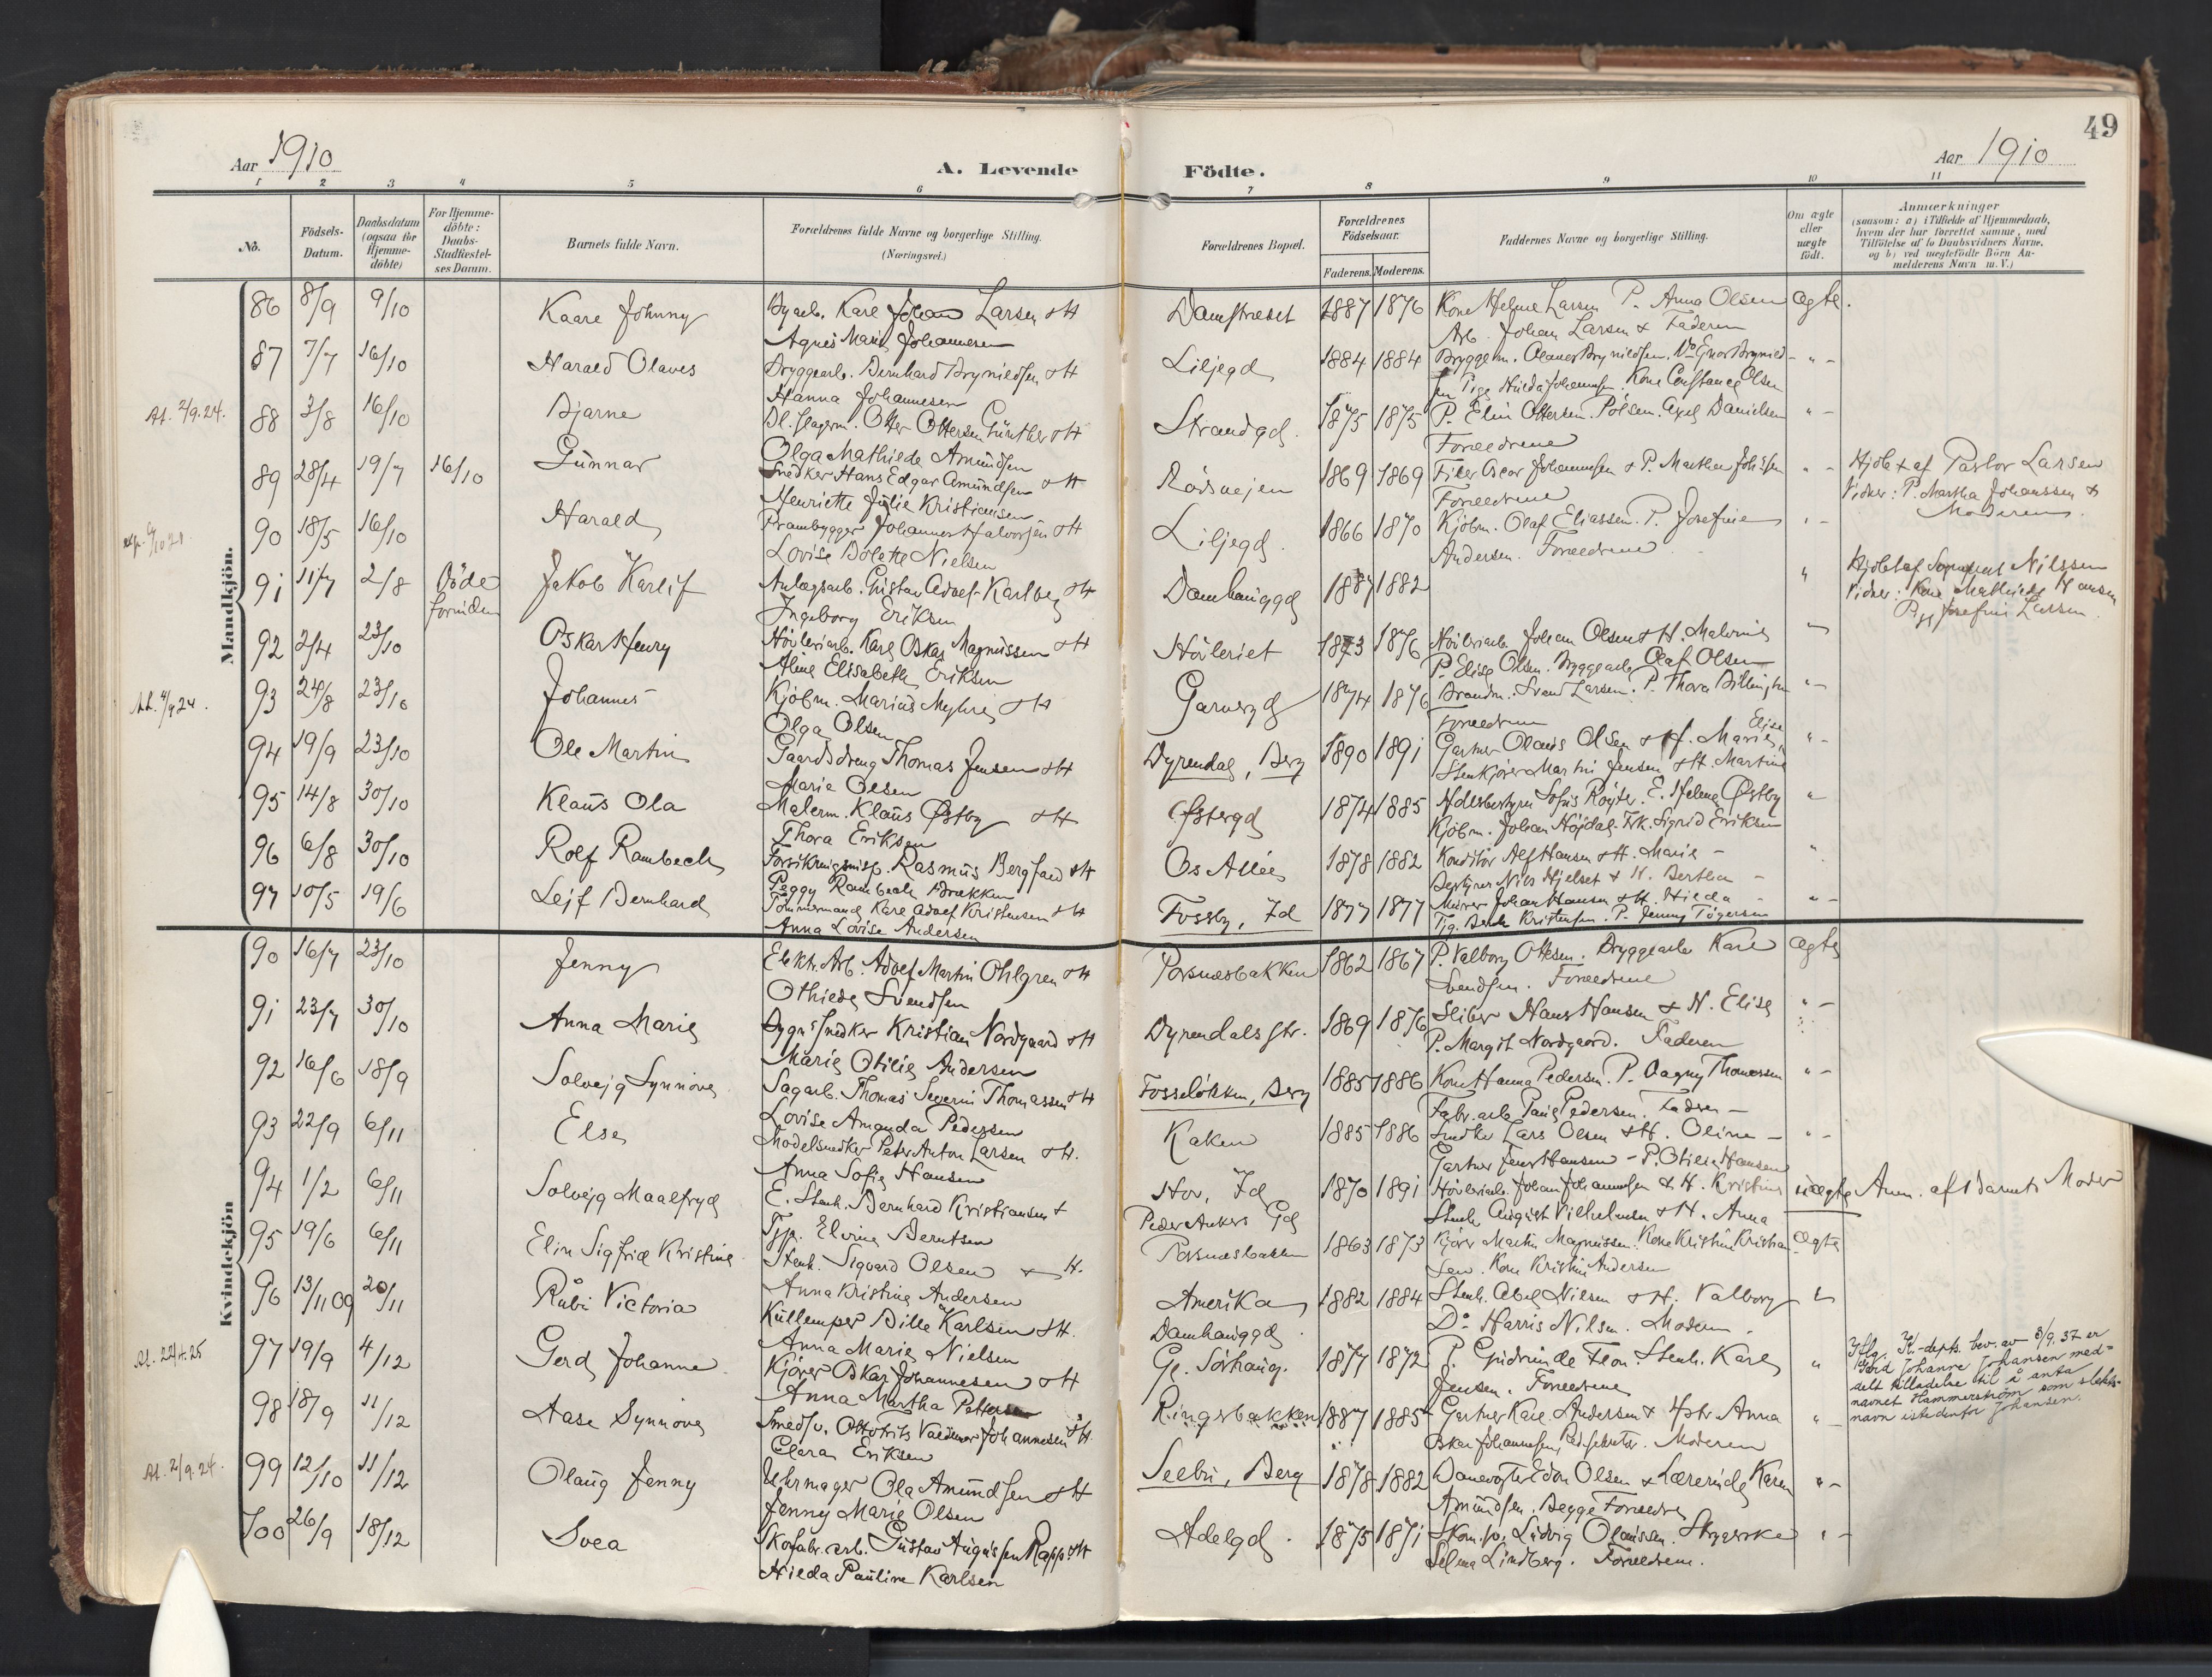 49
Aar 1910
A. Levende Födte.
Aar 1910
1 2 3 4 5 6 7 8 9 10 11
No.
Födsels-Datum.
Daabsdatum (ogsaa för Hjemme-döbte)
For Hjemme-döbte: Daabs-Stadfæstel-ses Datum.
Barnets fulde Navn.
Forældrenes fulde Navne og borgerlige Stilling. (Næringsvei.)
Forældrenes Bopæl.
Forældrenes Födselsaar.
Faderens. Moderens.
Faddernes Navne og borgerlige Stilling.
Om ægte eller uægte födt.
Anmærkninger
(saasom: a) i Tilfælde af Hjemmedaab,
hvem der har forrettet samme, med
Tilföielse af to Daabsvidners Navne,
og b) ved uægtefödte Börn An-
melderens Navn m. V.)
Mandkjön.
86 8/9 9/10 Kaare Johnny Byarb. Karl Johan Larsen & H Damstrædet 1887 1876 Kone Helene Larsen P. Anna Olsen ægte.
Agnes Marie Johannesen Arb. Johan Larsen & Faderen
87 7/7 16/10 Harald Olaves Bryggearb. Bernhard Brynildsen & H Liljegd 1884 1884 Bryggem. Brynildsen.
Hanna Johannesen Kone Constance Olsen
At. 2/9.24. 88 3/8 16/10 Bjarne Otter Ottersen Günther & H Strandgd. 1875 1875 P. Elin Ottersen. Axel Danielsen
Olga Mathilde Amundsen Forældrene
89 28/4 19/7 16/10 Gunnar Snedker Hans Edgar Amundsen & H Rödsvejen 1869 1869 Filer Oscar Johannesen & P. Martha Johansen Hjdbt af Pastor Larsen
Henriette Julie Kristiansen Forældrene Vidner: P. Martha Johanssen & Moderen.
90 18/5 16/10 Harald Prambygger Johannes Halvorsen & H Liljegd. 1866 1870 Kjöbm. Olaf Eliassen. P. Josefine
Lovise Bolette Nielsen Andersen. Forældrene
91 11/7 2/8 Döde forinden Jakob Karlif Anlægsarb. Gustav Adolf Karlberg & H Damhauggd 1887 1882 Hjdbt af Nilssen
Ingeborg Eriksen Vidner: Kone Mathilde Hansen
Josefine Larsen.
92 2/4 23/10 Oskar Henry Hövleriarb. Karl Oskar Magnussen & H Hövleriet 1873 1876 Hövleriarb. Johan Olsen & H. Malvine
Aline Elisabeth Eriksen P. Elise Olsen. Bryggearb. Olaf Olsen
At. 4/9 24. 93 24/8 23/10 Johannes Kjöbm. Marius Myhre & H Garvergd 1874 1876 Brandm. Svend Larsen. P. Thora Billington
Olga Olsen Forældrene
94 19/9 23/10 Ole Martin Gaardsdreng Thomas Jensen & H Dyrendal, Berg 1890 1891 Gartner Olaus Olsen & H. Marie, Elise
Marie Olsen Stenkjörer Martin Jensen & H. Martine
95 14/8 30/10 Klaus Ola Malerm. Klaus Østby & H Østergd 1874 1885 Sofus Röyter. E. Helene Østby
Thora Eriksen Kjöbm. Johan Höjdal. Frk. Sigrid Eriksen
96 6/8 30/10 Rolf Rambech Forsikringsinsp. Rasmus Bergfald & H Os Allée 1878 1882 Konditor Alf Hansen & H. Marie -
Peggy Rambech Brækken Bestyrer Nils Hjelset & H. Bertha -
97 10/5 19/6 Leif Bernhard Tömmermand Karl Adolf Kristensen & H Fossby, Id 1877 1877 Murer Johan Hansen & H. Hilda
Anna Lovise Andersen Kristensen. P. Jenny Tögersen
Kvindekjön
90 16/7 23/10 Jenny Elektr. Arb. Adolf Martin Ohlgren & H Porsnæsbakken 1862 1867 P. Valborg Ottesen. Bryggearb. Karl ægte
Othilde Svendsen Svendsen. Forældrene
91 23/7 30/10 Anna Marie Bygn.snedker Kristian Nordgaard & H Dyrendalsgt. 1869 1876 Sliber Hans Hansen & H. Elise
Marie Otilie Andersen P. Margit Nordgaard. Faderen
92 16/6 18/9 Solvejg Synnöve Sagarb. Thomas Severin Thomassen & H Fosselökken, Berg 1885 1886 Kone Hanna Pedersen. P. Dagny Thomassen
Lovise Amanda Pedersen Fabr.arb. Paul Pedersen. Fadren -
93 22/9 6/11 Else Modelsnedker Peter Anton Larsen & H. Kaken 1885 1886 Snedker Lars Olsen & H. Oline -
Anna Sofie Hansen Gartner Jens Hansen - P. Otilie Hansen
94 1/2 6/11 Solvejg Maalfryd E. Stenh. Bernhard Kristiansen & Hov, Id 1870 1891 Hövleriarb. Johan Johannesen & H. Kristine uægte Anm. af Barnets Moder
Tjp. Elvine Berntsen Peder Ankers Gd Stenh. August Vilhelmsen & H. Anna
95 19/6 6/11 Elin Sigfrid Kristine Stenh. Sigvard Olsen & H. Porsnæsbakken 1863 1873 Kjörer Martin Magnussen. Kone Kristine Kristian- ægte
Anna Kristine Andersen sen. Kone Kristine Andersen
96 13/11 09 20/11 Rubi Victoria Kullemper Bille Karlsen & H. Amerika 1882 1884 Stenh. Abel Nilsen & H. Valborg
Anna Marie Nielsen Damhauggd. Do Harris Nilsen. Moderen.
At. 22/4.25 97 19/9 4/12 Gerd Johanne Kjörer Oskar Johannesen & H Gl. Sörhaug. 1877 1872 P. Gudrun de Flon. Stenh. Karl Iflg. J.-depts. bev. av 3/9. 37 er
Anna Martha Pettersen Jensen. Forældrene Gerd Johanne Johansen med-
delt tilladelse til å anta
navnet Hammerström som slekts-
navn istedenfor Johansen.
98 18/9 11/12 Aase Synnöve Smedsv. Otto Frits Valdemar Johannesen & H. Ringsbakken 1887 1885 Gartner Karl Andersen & Hstr Anna
Clara Eriksen Oskar Johannesen, Moderen
At. 2/9.24. 99 12/10 11/12 Olaug Jenny Uhrmager Ola Amundsen & H Seebu, Berg 1878 1882 Banevogter Edor Olsen & Lærerinde Karen
Jenny Marie Olsen Amundsen. Begge Forældre
100 26/9 18/12 Svea Skofabr.arb. Gustav Augus sen Rapp & H Adelgd. 1875 1871 Skom.sv. Ludvig Olaussen. Strygerske
Hilda Pauline Karlsen Selma Lindberg. Forældrene.